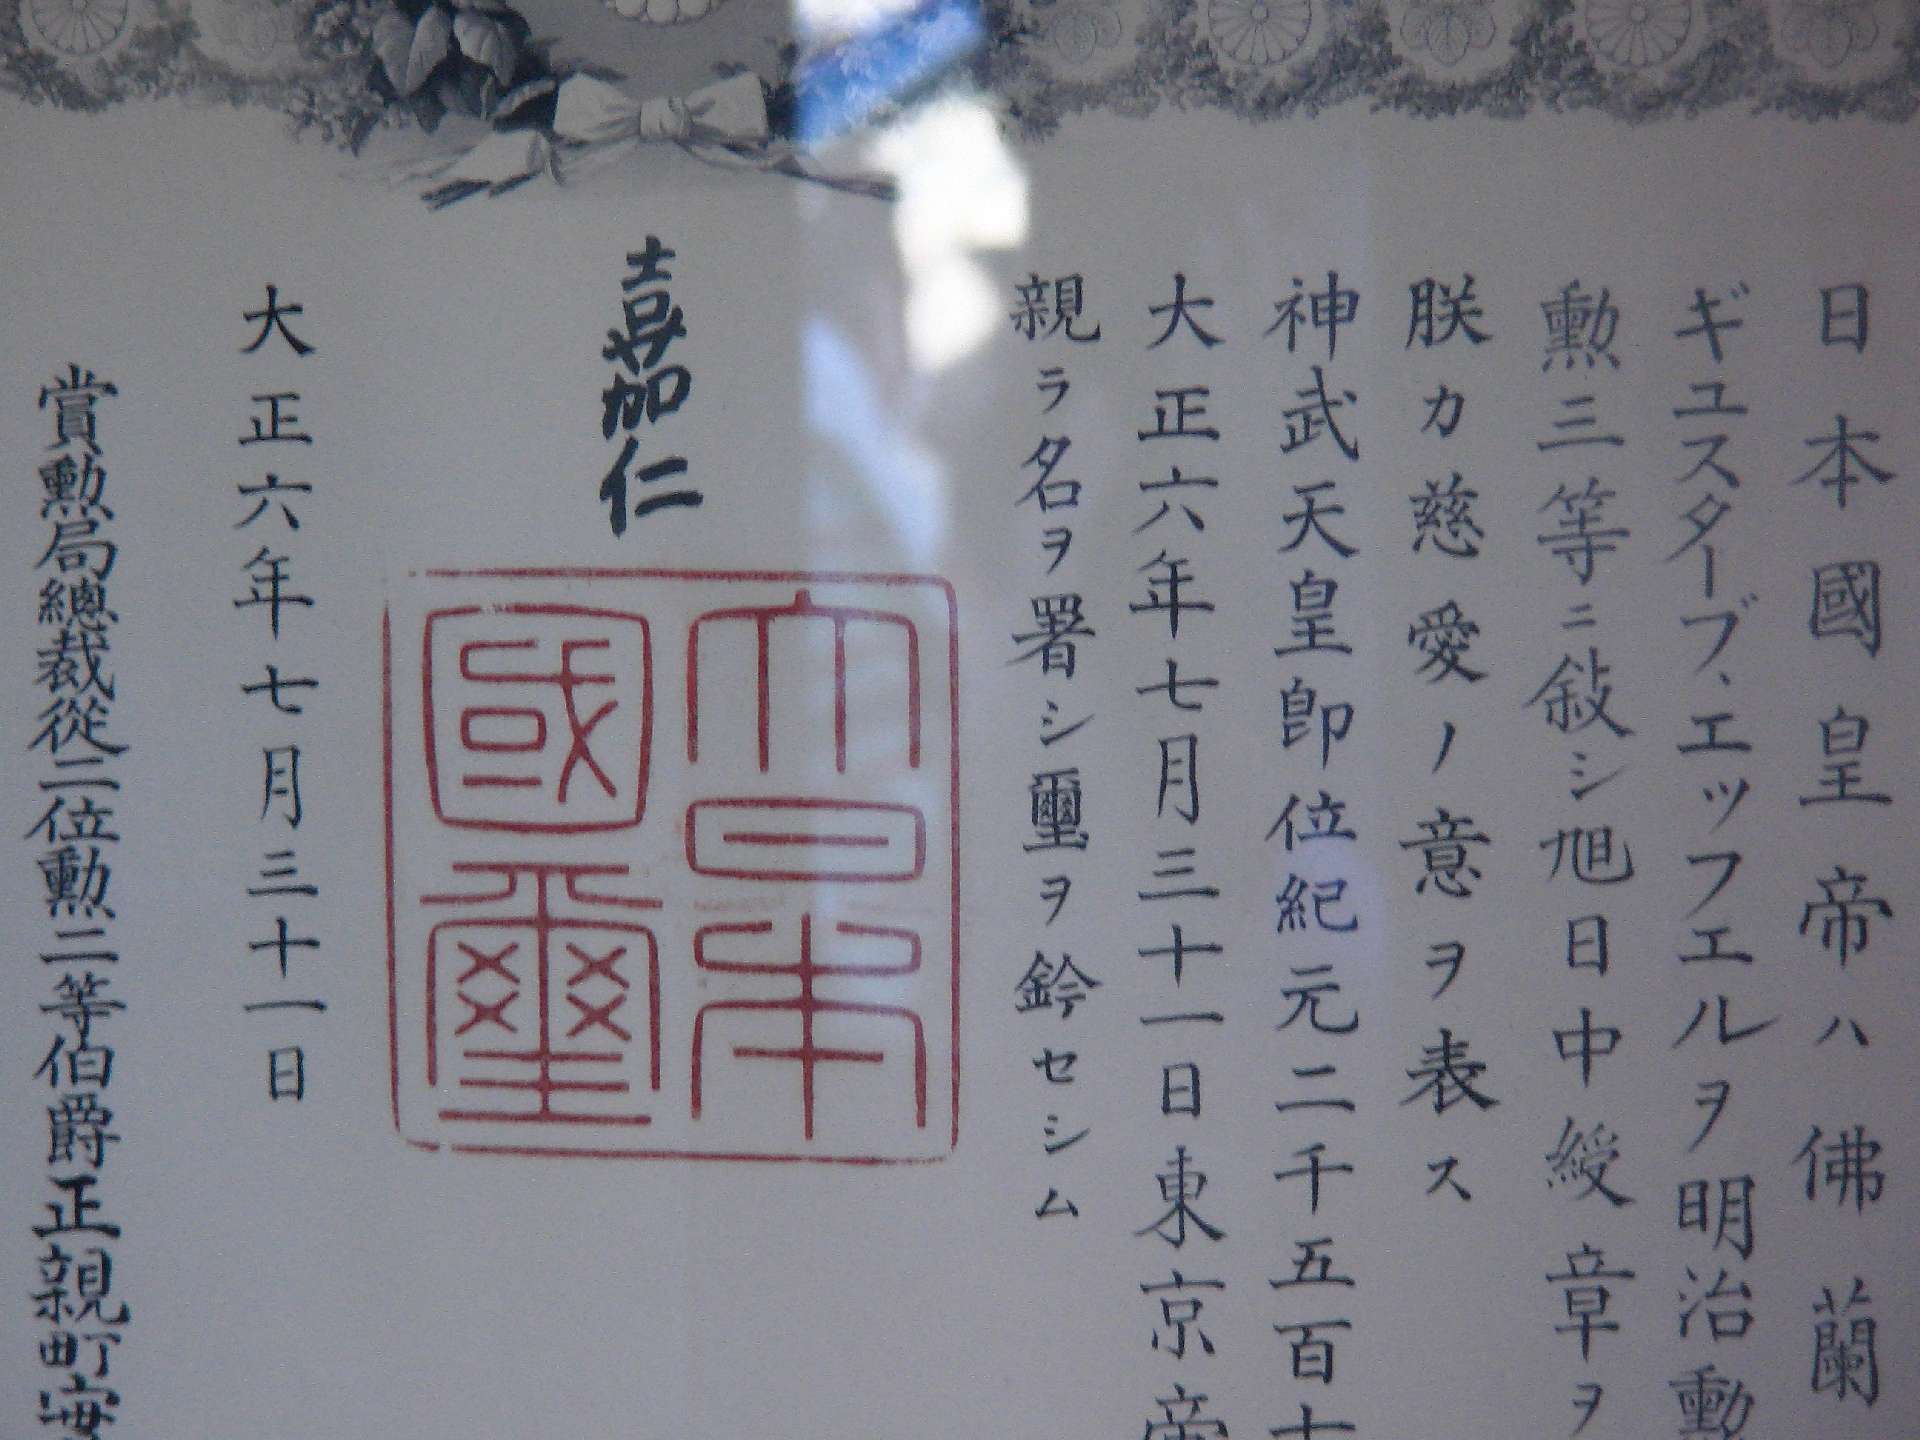 日本國皇帝ハ佛蘭
ギュスターブ、エッフェルヲ明治勳
勳三等ニ敍シ旭日中綬章ヲ
朕カ慈愛ノ意ヲ表ス
神武天皇即位紀元二千五百七
大正六年七月三十一日東京帝
親ラ名ヲ署シ璽ヲ鈐セシム
嘉仁
大日本
國璽
大正六年七月三十一日
賞勳局總裁從二位勳二等伯爵正親町實